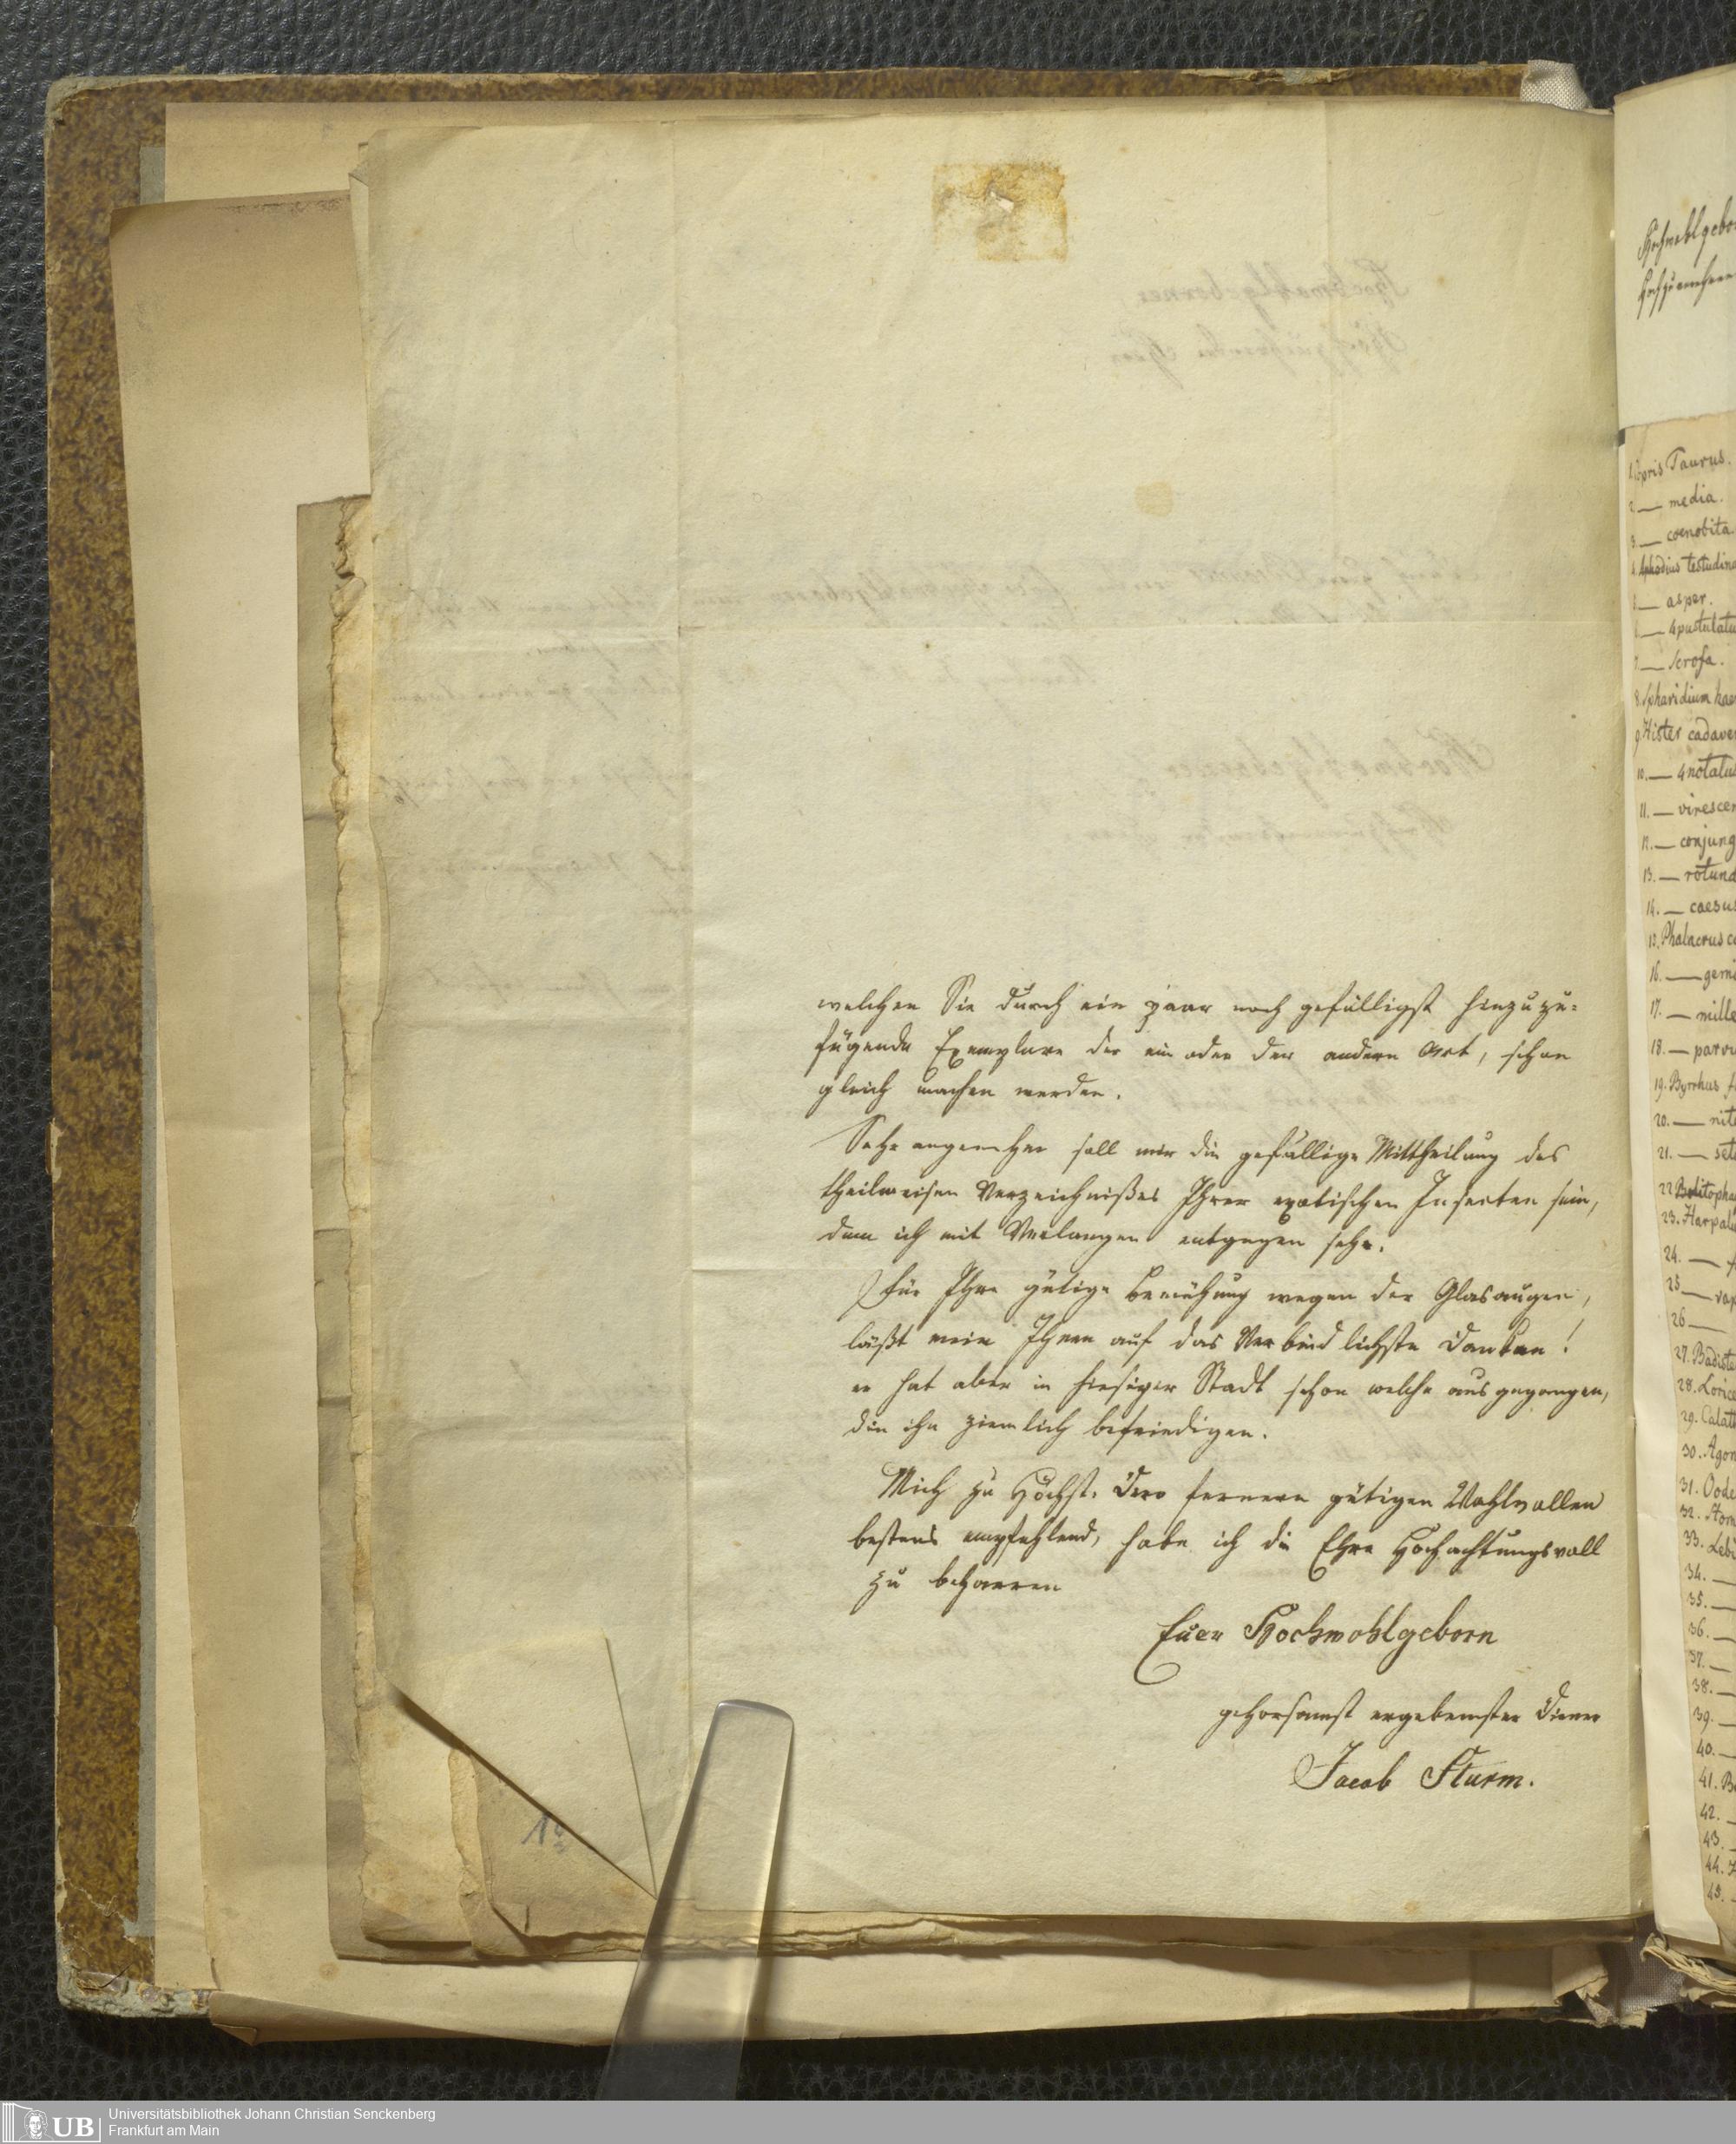 welchen Sie durch ein paar noch gefälligst hinzuzu=
fügende Exemplare der ein oder der andern Art, schon
gleich machen werden.
Sehr angenehm soll mir die gefällige Mittheilung des
theilweisen Verzeichnißes Ihrer exotischen Insecten sein,
dem ich mit Verlangen entgegen sehe.
Für Ihre gütige Bemühung wegen der Glasaugen,
läßt mein Ihnen auf das Verbindlichste danken!
er hat aber in hiesiger Stadt schon welche ausgegangen,
die ihn ziemlich befriedigen.
Mich zu Höchst. Dero fernern gütigen Wohlwollen
bestens empfehlend, habe ich die Ehre Hochachtungsvoll
zu beharren
Euer Hochwohlgeborn
gehorsamst ergebenster Diener
Jacob Sturm.
Taurus.
2. — media.
3. — coenobita
4. Aphodius testudina
— asper.
— 4pustulatu
7. — Scrofa.
8. Sphaeridium
9. Hister cadave
10. — 4notatus
11. — virescen
12. — conjung
13. — rotund
14. — caesus
15. Phalacrus
16. — gemi
17. — mille
18. — parvu
19. Byrrhus
20. — nit
21. — set
22.
23. Harpal
24. —
25. —
26. —
27. Badist
28. Loric
29. Calat
30. Agon
31. Oode
32.
33. Lebi
34. —
35. —
36. —
37. —
38. —
39. —
40. —
41. B
42. —
43.
44.
45.
UB
Universitätsbibliothek Johann Christian Senckenberg
Frankfurt am Main